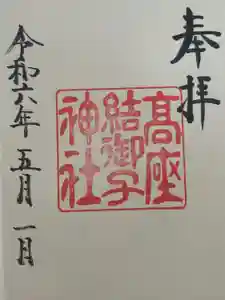 奉拝
髙座
結御子
神社
令和六年 五月 一日